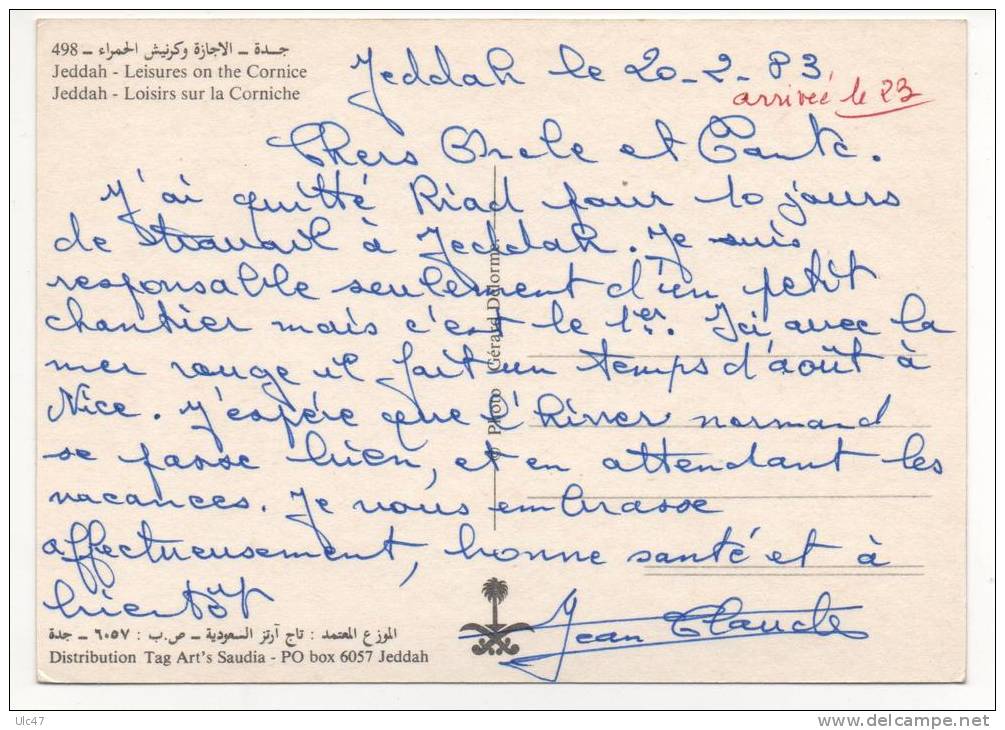 498 ــ جــدة ــ الاجازة وكرنيش الحمراء
Jeddah - Leisures on the Cornice
Jeddah - Loisirs sur la Corniche
Jeddah le 20-2-83
arrivée le 23
Chers Oncle et Tante.
J'ai quitté Riad pour 10 jours
de travail à Jeddah. Je suis
responsable seulement d'un petit
chantier mais c'est le 1er. Ici avec la
mer rouge il fait un temps d'août à
Nice. J'espère que l'hiver normand
se passe bien, et en attendant les
vacances. Je vous embrasse
affectueusement, bonne santé et à
bientôt
Jean Claude
© Photo Gérard Delorme.
الموزع المعتمد : تاج آرتز السعودية ــ ص.ب : ٦٠٥٧ ــ جدة
Distribution Tag Art's Saudia - PO box 6057 Jeddah
Ulc47
delcampe.net